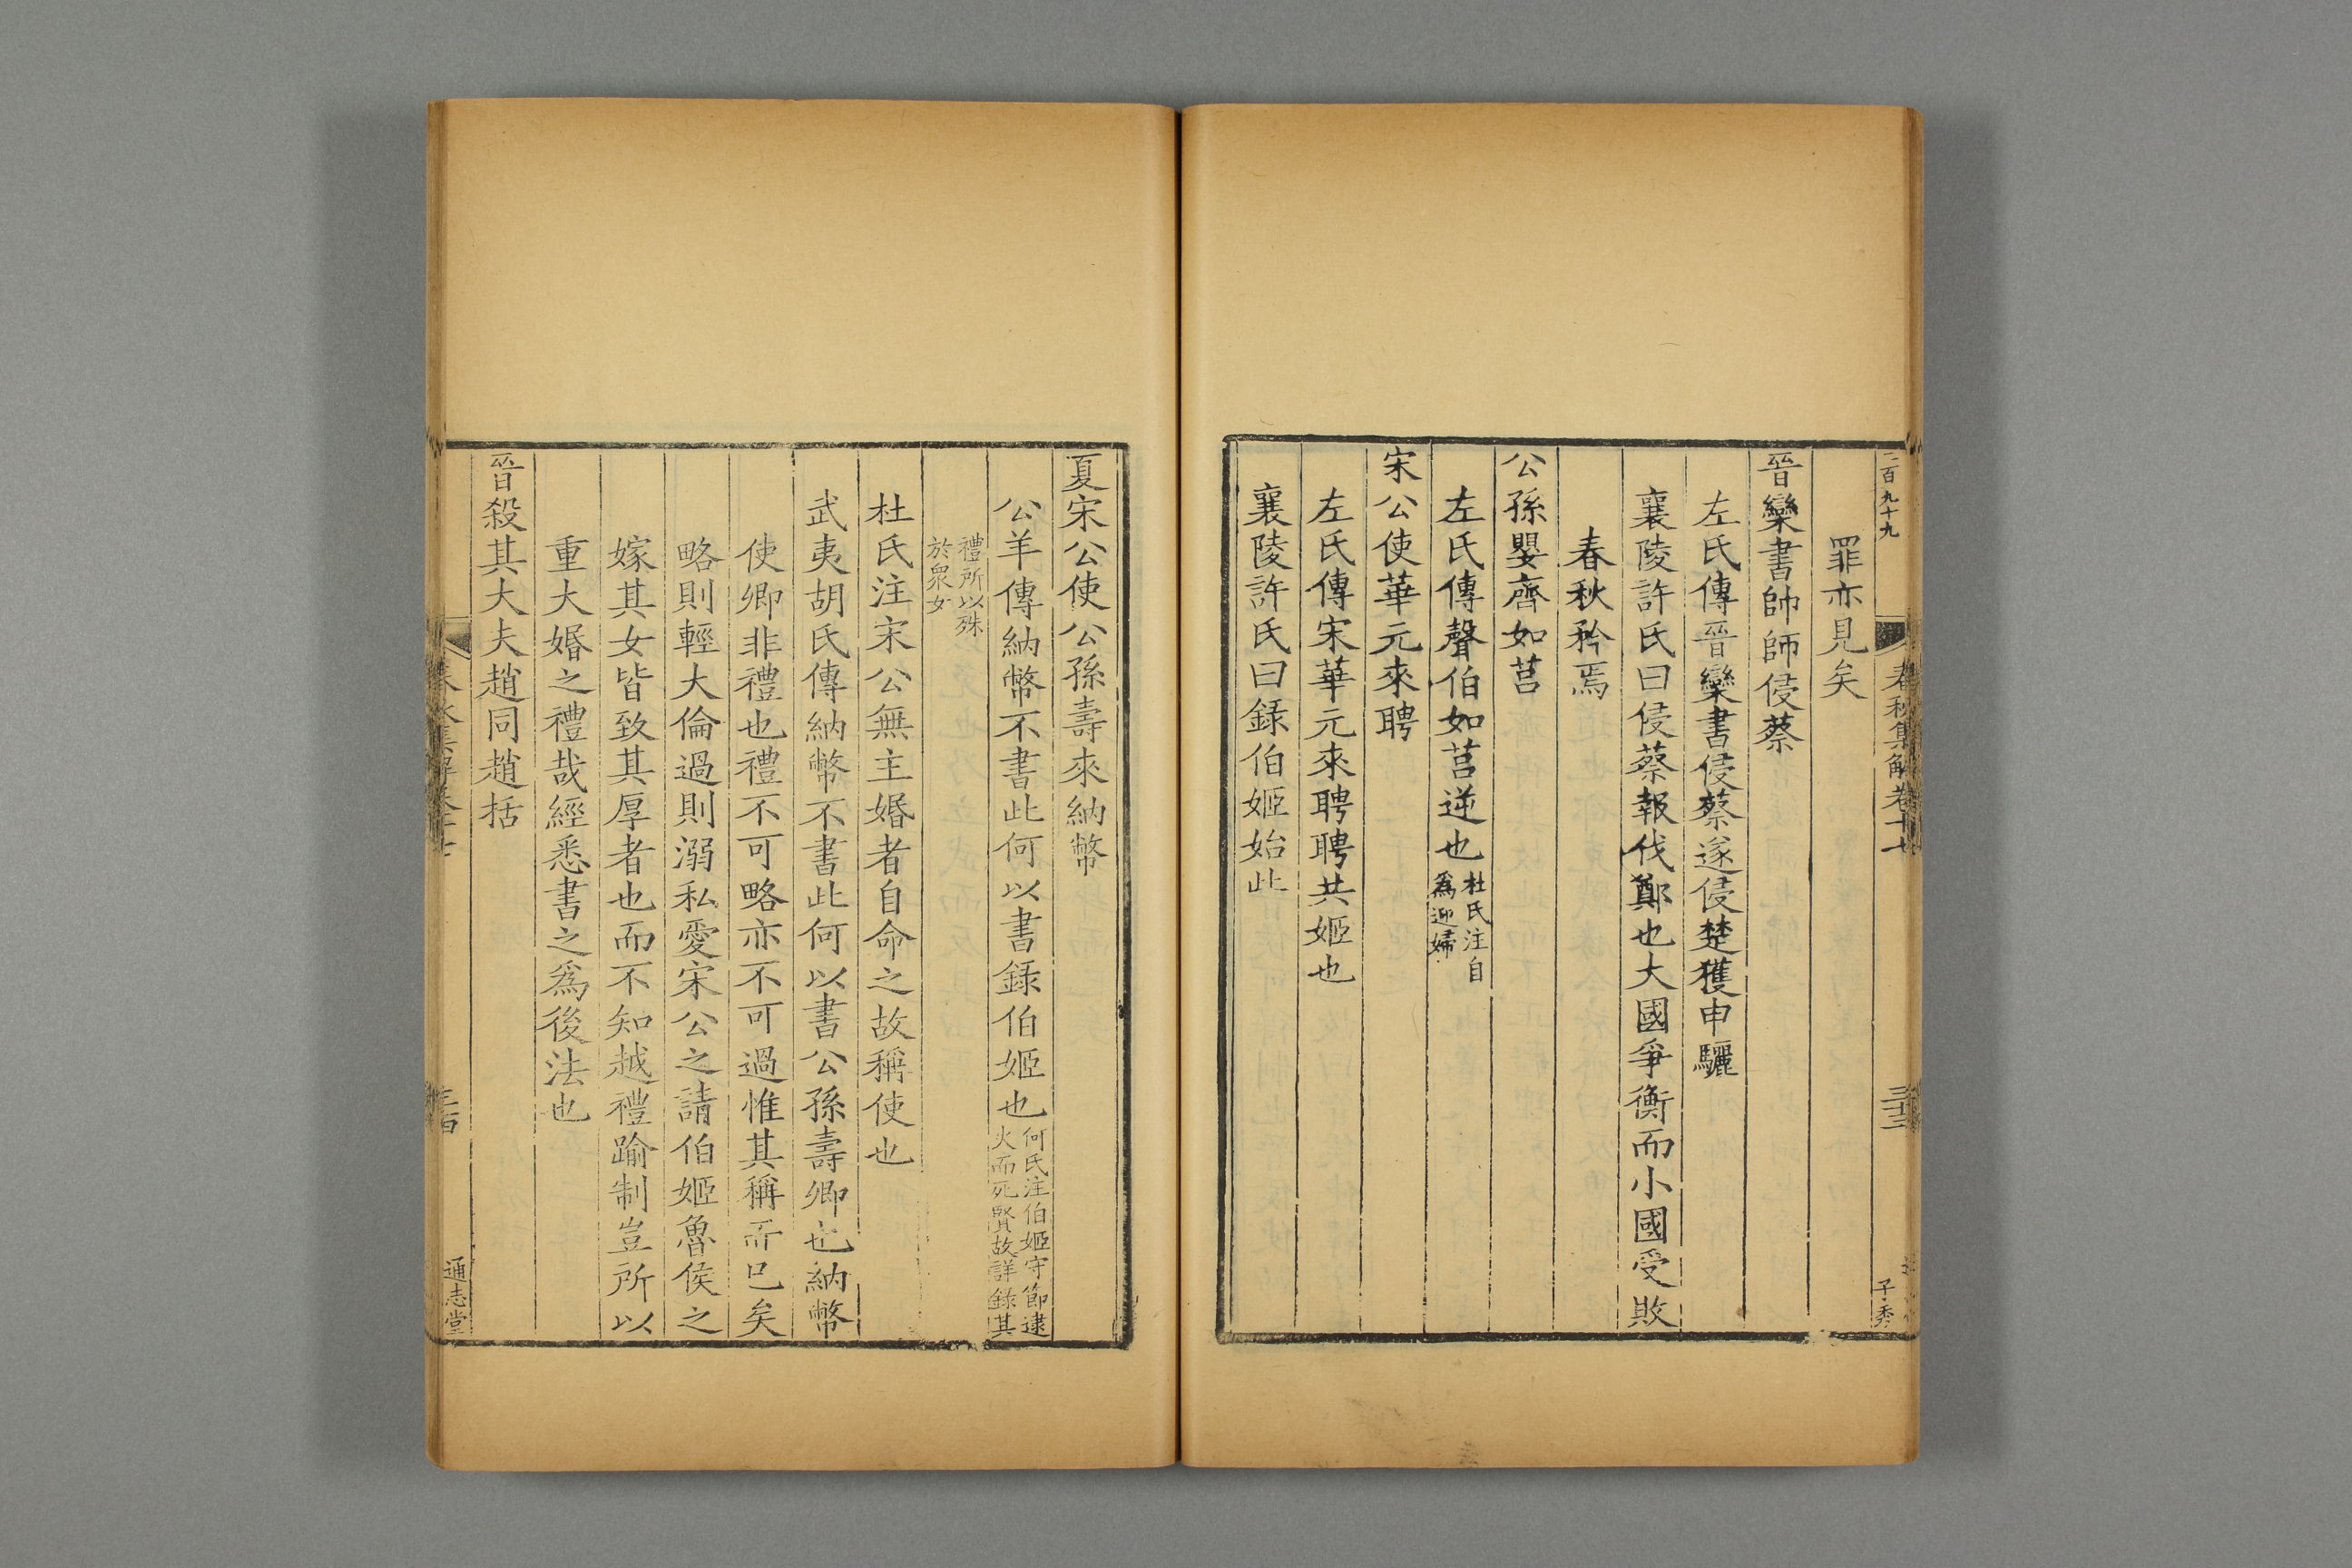 二百九十九
春秋集解卷十七
子秀
罪亦見矣
晉欒書帥師侵蔡
左氏傳晉欒書侵蔡遂侵楚獲申驪
襄陵許氏曰侵蔡報伐鄭也大國爭衡而小國受敗
春秋矜焉
公孫嬰齊如莒
左氏傳聲伯如莒逆也杜氏注自爲迎婦
宋公使華元來聘
左氏傳宋華元來聘聘共姬也
襄陵許氏曰録伯姬始此
夏宋公使公孫壽來納幣
公羊傳納幣不書此何以書録伯姬也何氏注伯姬守節逮火而死賢故詳錄其
禮所以殊於衆女
杜氏注宋公無主婚者自命之故稱使也
武夷胡氏傳納幣不書此何以書公孫壽卿也納幣
使卿非禮也禮不可略亦不可過惟其稱而已矣
略則輕大倫過則溺私愛宋公之請伯姬魯侯之
嫁其女皆致其厚者也而不知越禮踰制豈所以
重大婚之禮哉經悉書之爲後法也
晉殺其大夫趙同趙括
通志堂